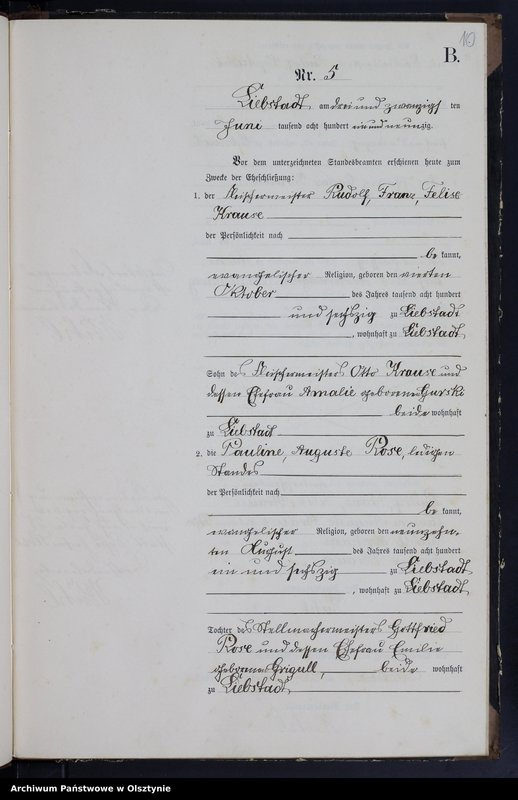 10
B.
Nr. 5
Liebstadt, am drei und zwanzigsten
Juni tausend acht hundert ein und neunzig.
Vor dem unterzeichneten Standesbeamten erschienen heute zum
Zwecke der Eheschließung:
1. der Fleischermeister Rudolf, Franz, Felix
Krause
der Persönlichkeit nach
be kannt,
evangelischer Religion, geboren den vierten
Oktober des Jahres tausend acht hundert
und sechszig zu Liebstadt
, wohnhaft zu Liebstadt,
Sohn des Fleischermeisters Otto Krause und
dessen Ehefrau Amalie geborene Gurski
beide wohnhaft
zu Liebstadt
2. die Pauline, Auguste Rose, ledigen
Standes
der Persönlichkeit nach
be kannt,
evangelischer Religion, geboren den neunzehn-
ten August des Jahres tausend acht hundert
ein und sechszig zu Liebstadt
, wohnhaft zu Liebstadt,
Tochter des Stellmachermeisters Gottfried
Rose und dessen Ehefrau Emilie
geborene Grigull, beide wohnhaft
zu Liebstadt,
Archiwum Państwowe w Olsztynie